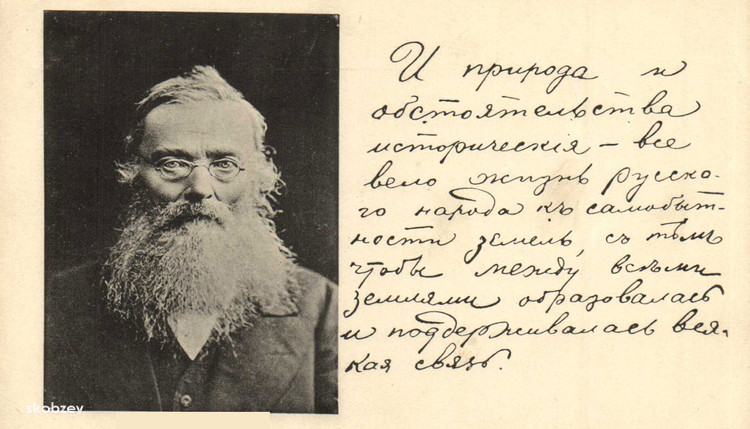 И природа и
обстоятельства
историческія – все
вело жизнь русско-
го народа къ самобыт-
ности земель, съ тѣмъ
чтобы между всѣми
землями образовалась
и поддерживалась вся-
кая связь.
skobzev